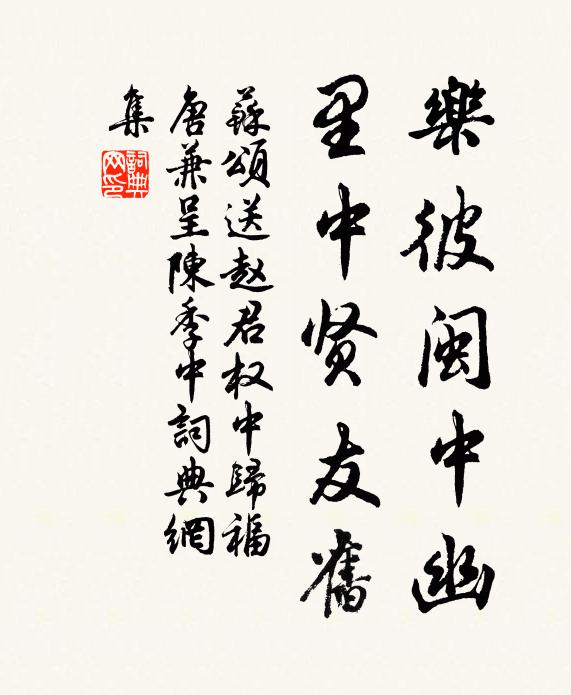 樂彼閩中幽
里中贤友舊
蘇頌送赵君权中歸福
唐兼呈陳季中詞典網
集
詞典网印